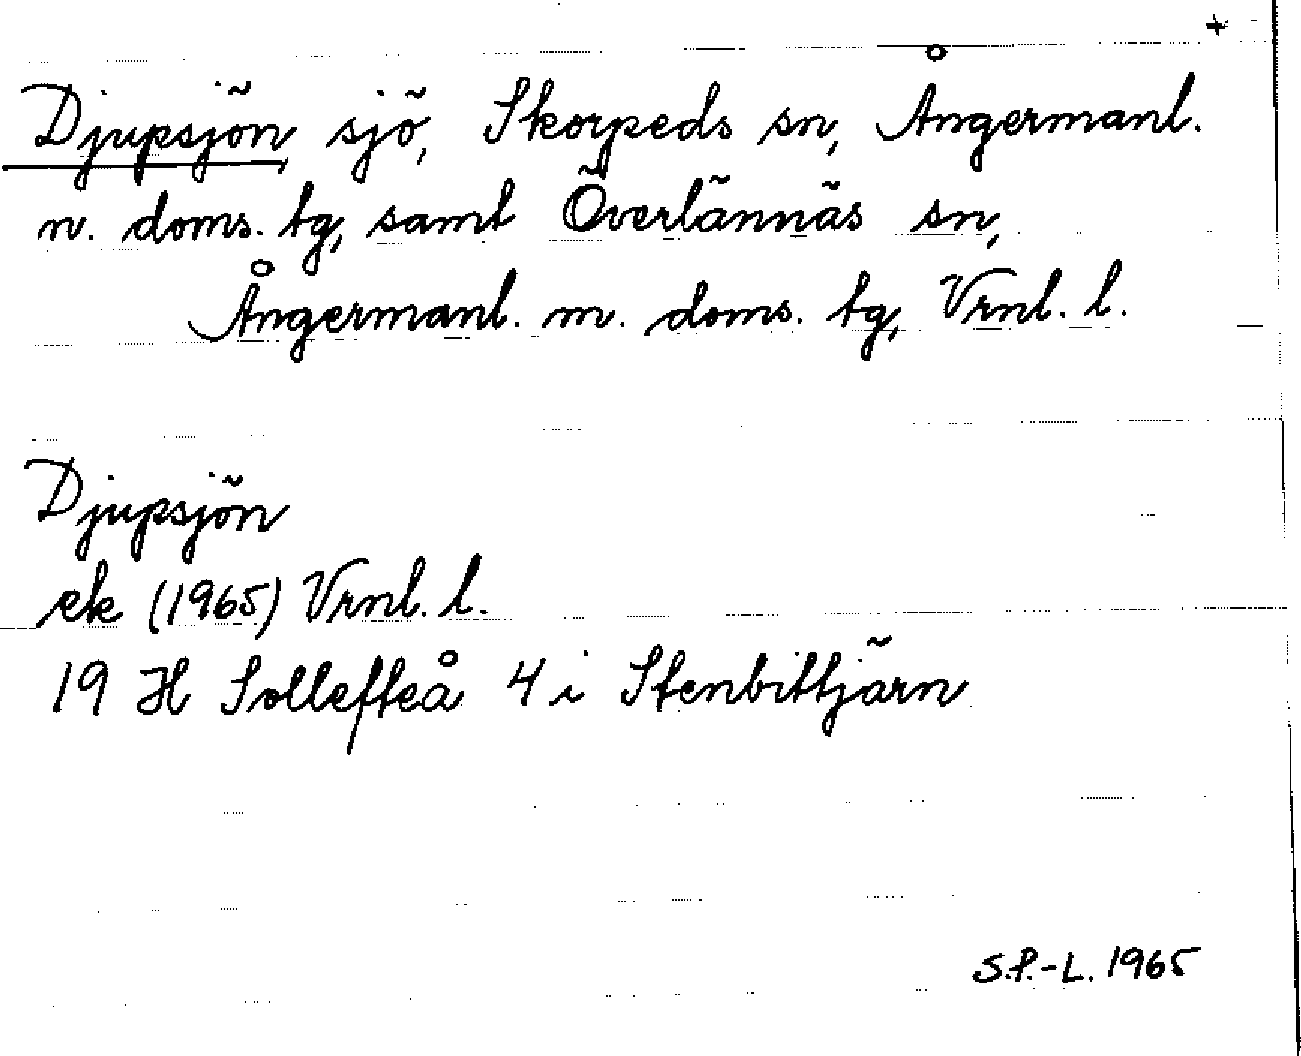 +
Djupsjön sjö, Skorpeds sn, Ångermanl.
n. doms. tg, samt Överlännäs sn,
Ångermanl. m. doms. tg, Vrnl. l.
Djupsjön
ek (1965) Vrnl. l.
19 H Sollefteå 4 i Stenbittjärn
S.P.-L. 1965